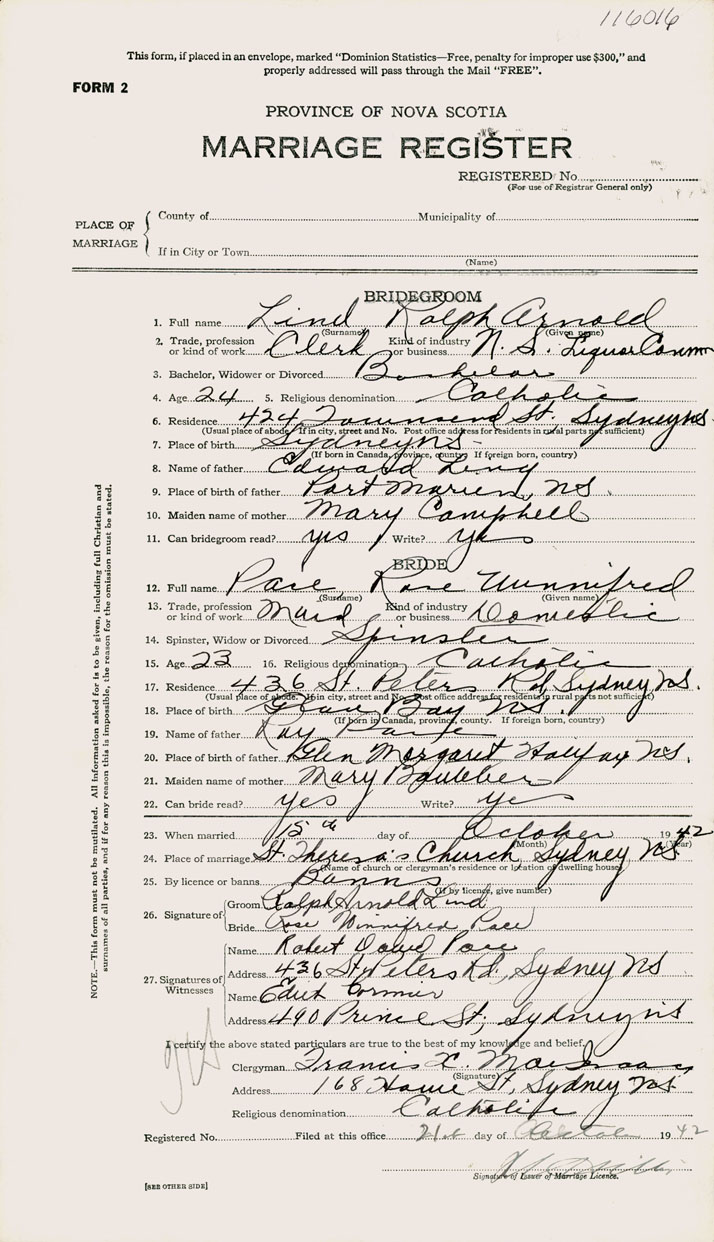 116016
This form, if placed in an envelope, marked "Dominion Statistics—Free, penalty for improper use $300," and
properly addressed will pass through the Mail "FREE".
FORM 2
PROVINCE OF NOVA SCOTIA
MARRIAGE REGISTER
REGISTERED No.
(For use of Registrar General only)
PLACE OF MARRIAGE
County of Municipality of
If in City or Town
(Name)
BRIDEGROOM
1. Full name Lind Ralph Arnold
(Surname) (Given name)
2. Trade, profession or kind of work Clerk Kind of industry or business N.S. Liquor Comm
3. Bachelor, Widower or Divorced Bachelor
4. Age 24 5. Religious denomination Catholic
6. Residence 424 Townsend St. Sydney NS.
(Usual place of abode. If in city, street and No. Post office address for residents in rural parts not sufficient)
7. Place of birth Sydney NS
(If born in Canada, province, county. If foreign born, country)
8. Name of father Edward
9. Place of birth of father Port Morien, NS.
10. Maiden name of mother Mary Campbell
11. Can bridegroom read? yes Write? yes
BRIDE
12. Full name Pace, Rose Winnifred
(Surname) (Given name)
13. Trade, profession or kind of work Maid Kind of industry or business Domestic
14. Spinster, Widow or Divorced Spinster
15. Age 23 16. Religious denomination Catholic
17. Residence 436 St. Peters Rd, Sydney NS.
(Usual place of abode. If in city, street and No. Post office address for residents in rural parts not sufficient)
18. Place of birth Bay NS.
(If born in Canada, province, county. If foreign born, country)
19. Name of father Ray
20. Place of birth of father Glen Margaret Halifax NS.
21. Maiden name of mother Mary
22. Can bride read? yes Write? yes
23. When married 15th day of October 1942
(Month) (Year)
24. Place of marriage St. Theresa's Church, Sydney NS
(Name of church or clergyman's residence or location of dwelling house)
25. By licence or banns Banns
(If by licence, give number)
26. Signature of
Groom Ralph Arnold Lind
Bride Rose Winnifred Pace
27. Signatures of Witnesses
Name Robert David Pace
Address 436 St. Peters Rd., Sydney NS
Name Edith Cormier
Address 490 Prince St, Sydney NS
I certify the above stated particulars are true to the best of my knowledge and belief.
Clergyman Francis X.
(Signature)
Address 168 St, Sydney NS
Religious denomination Catholic
Registered No. Filed at this office 21st day of October 1942
Signature of Issuer of Marriage Licence.
[SEE OTHER SIDE]
NOTE.—This form must not be mutilated. All information asked for is to be given, including full Christian and
surnames of all parties, and if for any reason this is impossible, the reason for the omission must be stated.